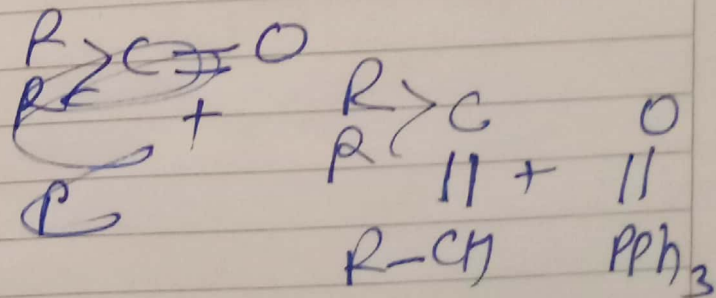 R > C = O
R
+
R > C O
R || + ||
R-CH PPh3